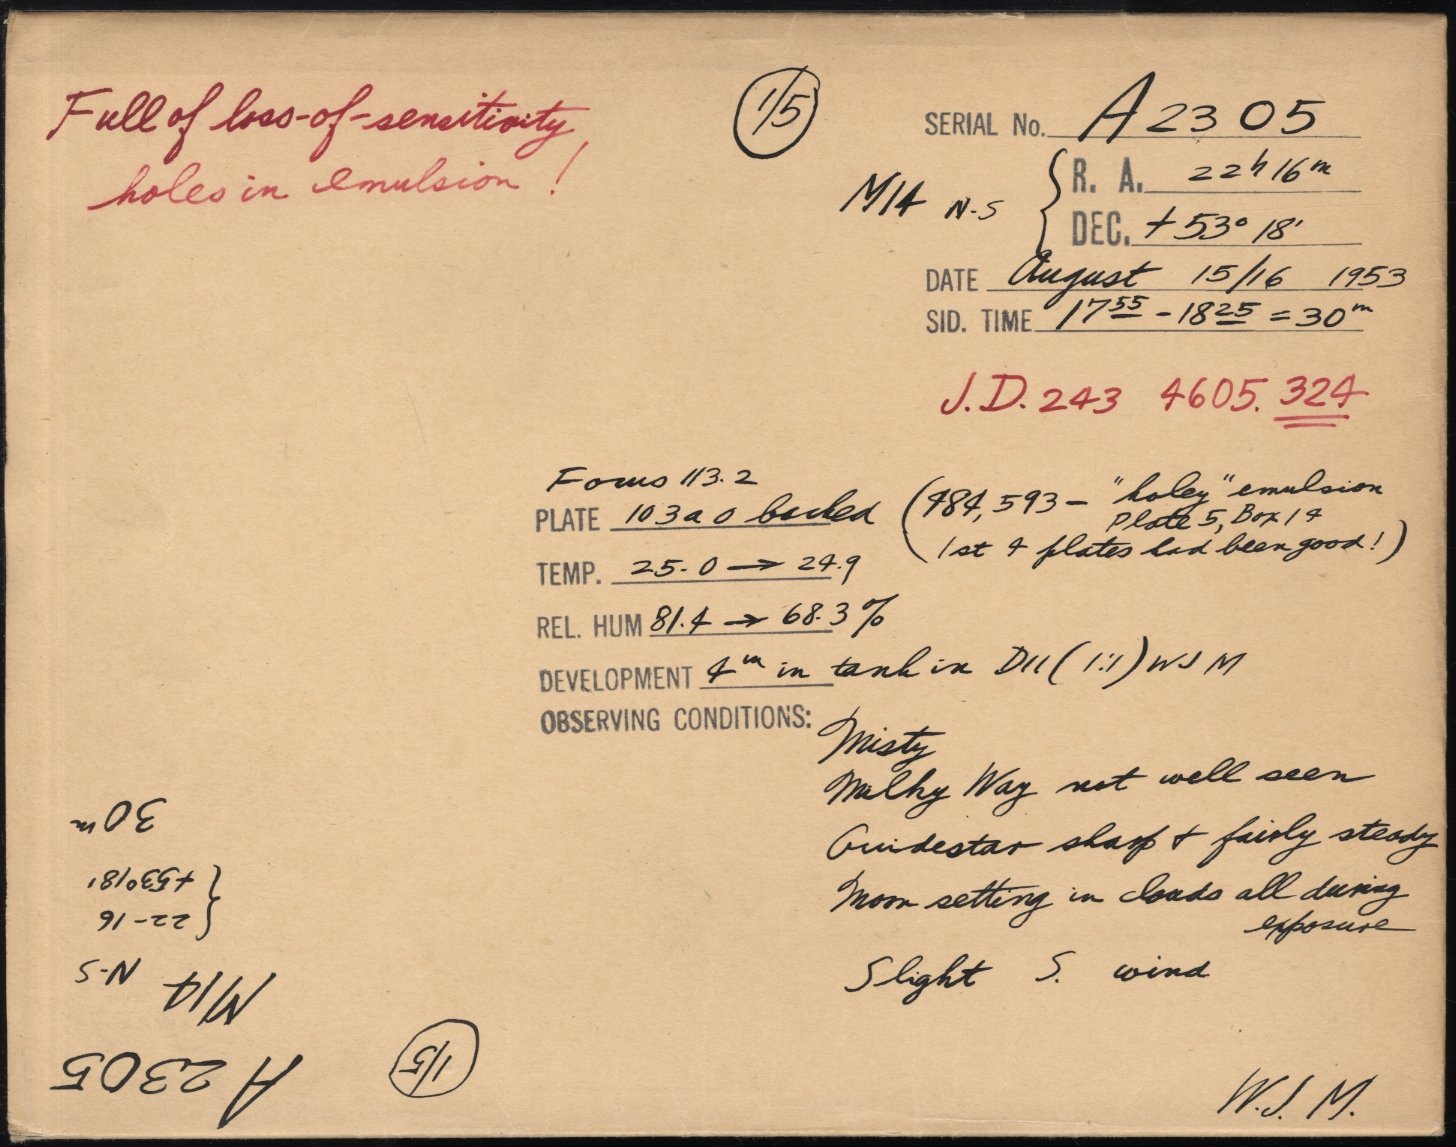 Full of loss-of-sensitivity,
holes in emulsion !
1/5
SERIAL No. A 2305
M14 N-S { R. A. 22h 16m
DEC. +53° 18'
DATE August 15/16 1953
SID. TIME 17 55 - 18 25 = 30m
J.D. 243 4605. 324
Focus 113.2
PLATE 103a O backed (484,593 - "holey" emulsion
Plate 5, Box 14
1st 4 plates had been good!)
TEMP. 25.0 → 24.9
REL. HUM 81.4 → 68.3 %
DEVELOPMENT 4m in tank in D11 (1:1) WJM
OBSERVING CONDITIONS:
Misty
Milky Way not well seen
Guidestar sharp + fairly steady
Moon setting in clouds all during
exposure
Slight S. wind
W.J.M.
A 2305
1/5
M14 N-S
{ 22-16
+53°18'
30m